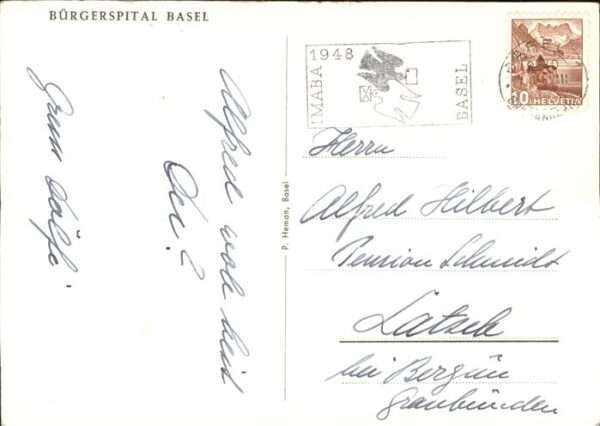 BÜRGERSPITAL BASEL
Alfred
Gruss
P. Heman, Basel
IMABA
1948
BASEL
10 HELVETIA
Herrn
Alfred Hilbert
Pension Schmidt
Latsch
bei Bergün
Graubünden